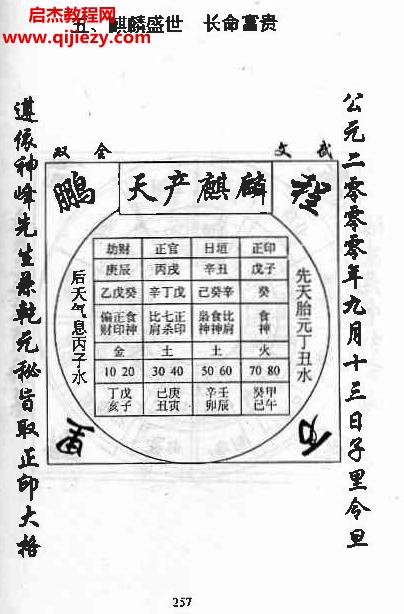 启杰教程网
www.qijiezy.com
五、麒麟盛世 长命富贵
公元二零零零年九月十三日子里令旦
文武
全双
天产麒麟
鹏
程
先天胎元丁丑水
后天气息丙子水
劫财 正官 日垣 正印
庚辰 丙戌 辛丑 戊子
乙戊癸 辛丁戊 己癸辛 癸
偏正食 比七正 枭食比 食
财印神 肩杀印 神神肩 神
金 土 土 火
10 20 30 40 50 60 70 80
丁戊 己庚 辛壬 癸甲
亥子 丑寅 卯辰 巳午
万
里
遵依神峰先生桑乾元秘旨取正印大格
257